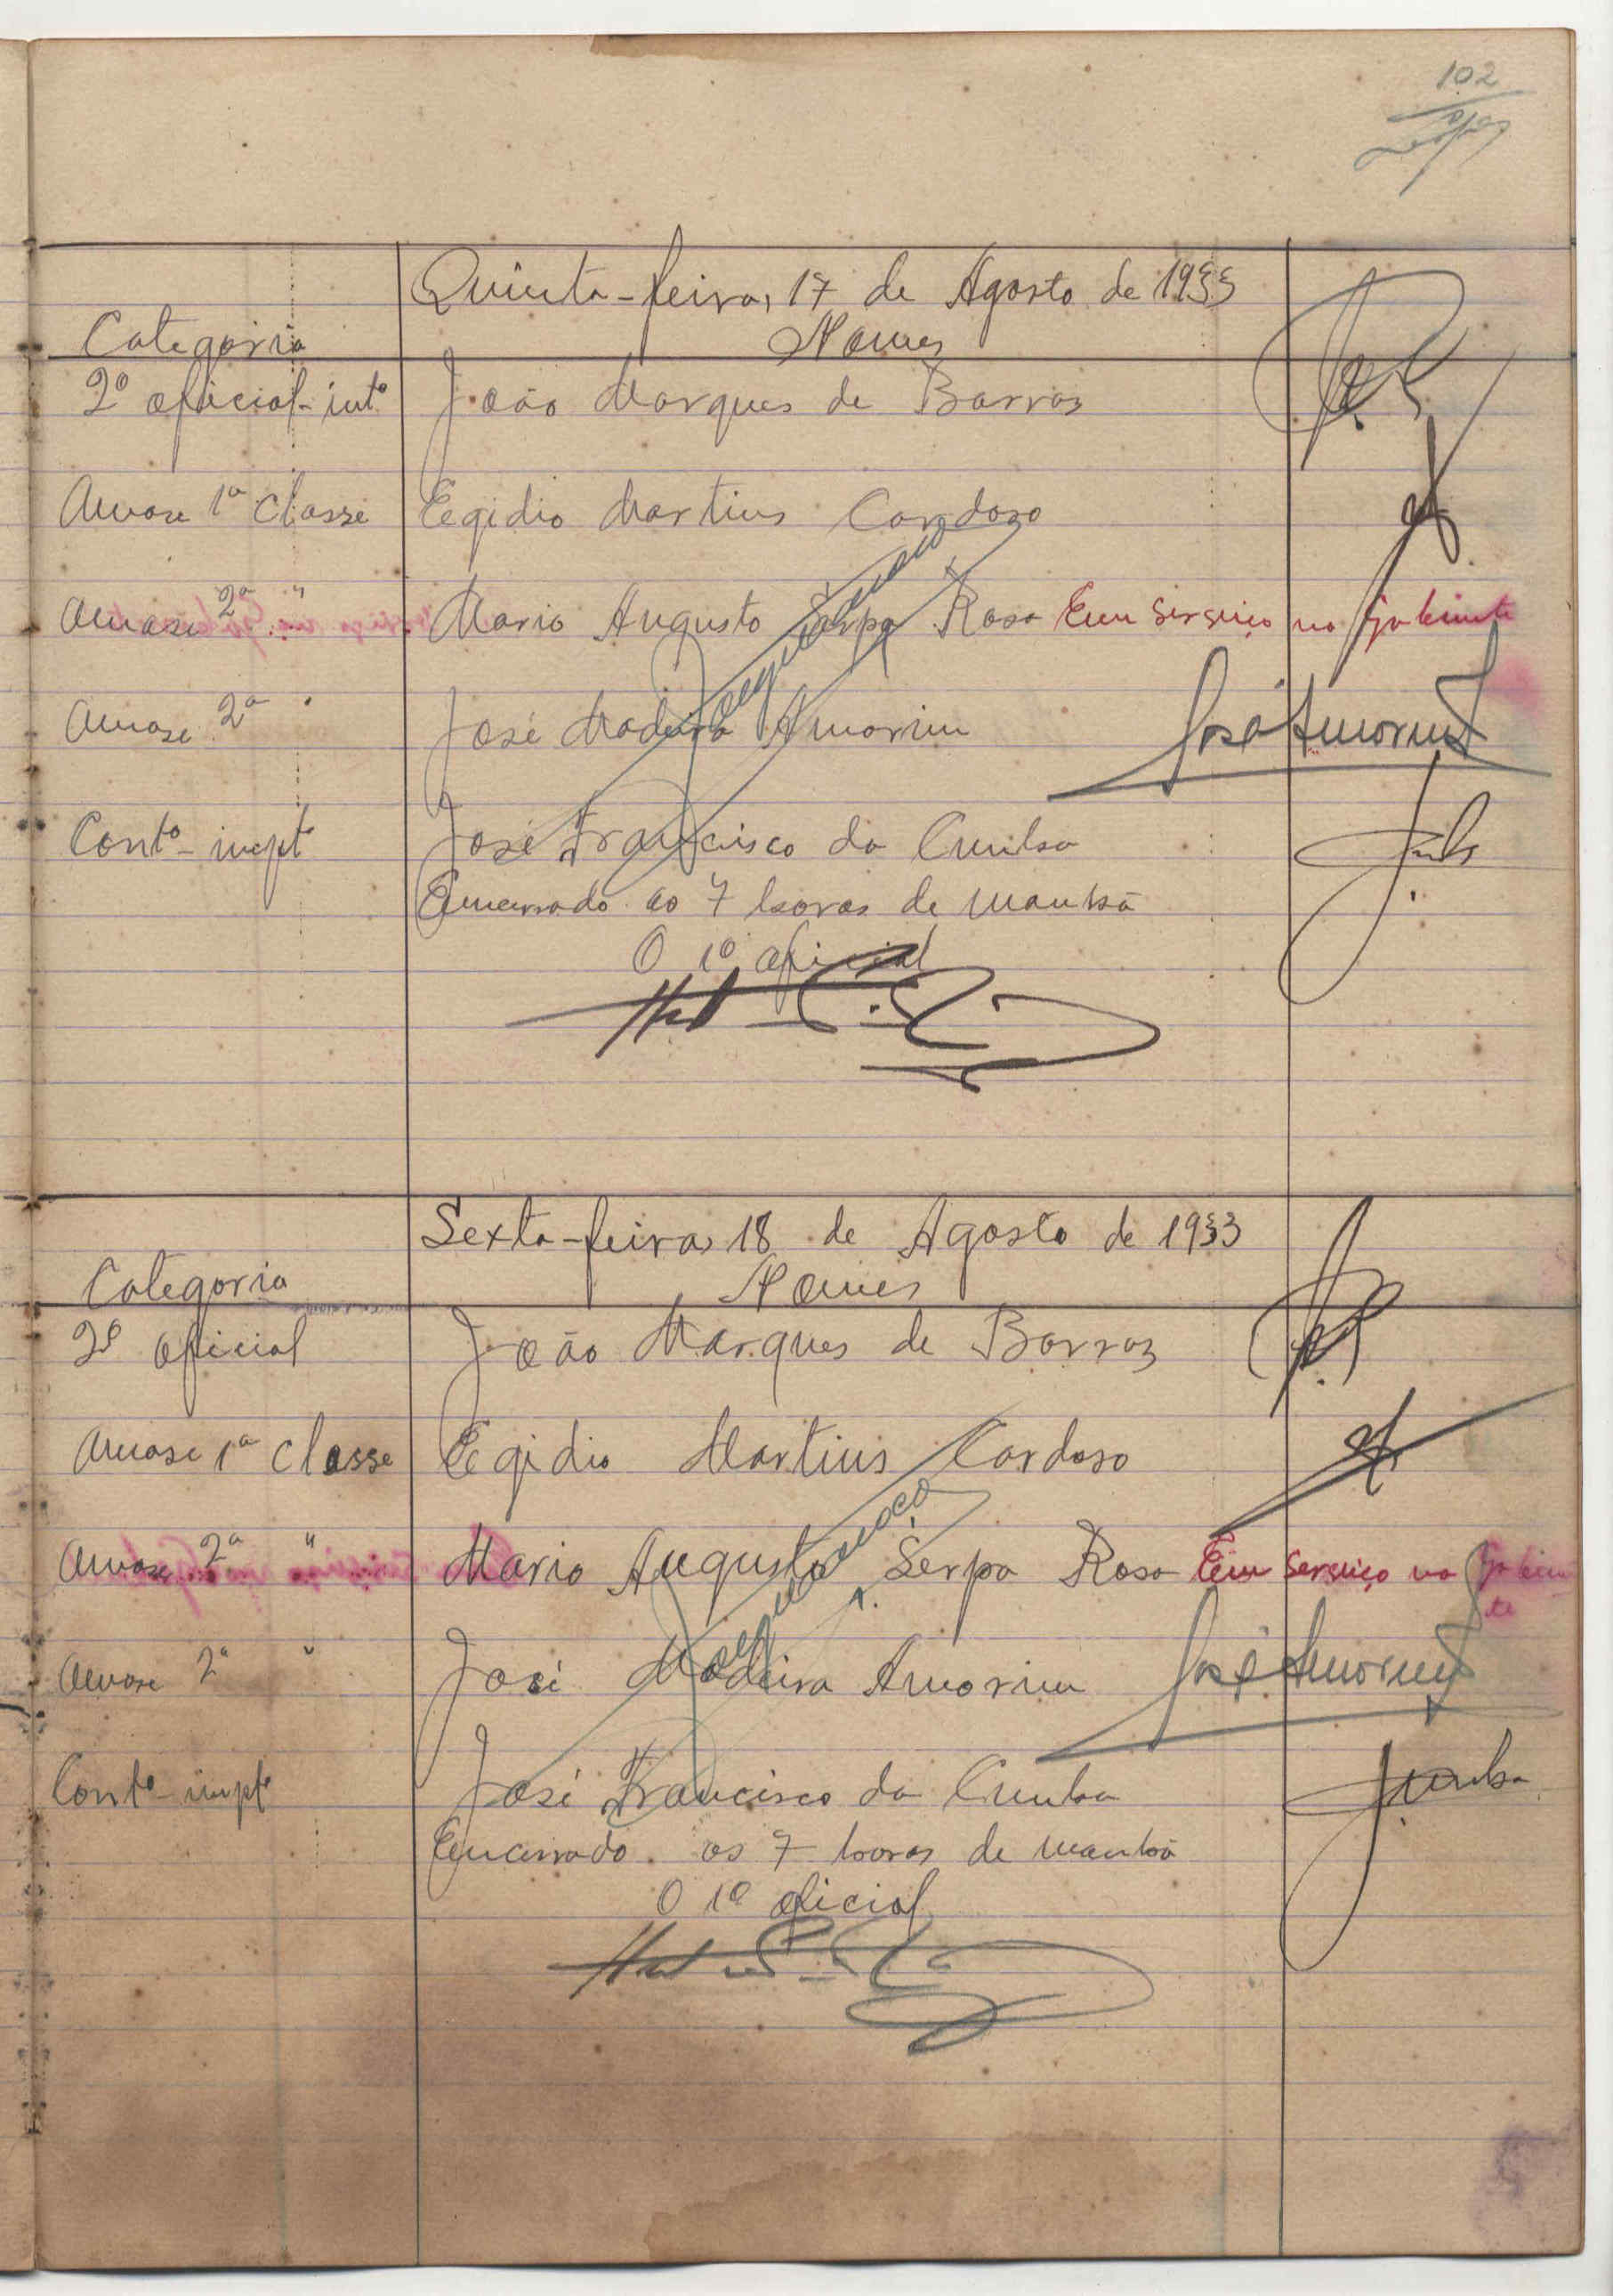 102
Quinta-feira, 17 de Agosto de 1933
Categoria Nomes
2º oficial-intº João Marques de Barros
Amase 1ª Classe Egidio Martins Cardoso
Amase 2ª " Mario Augusto Serpa Rosa Em serviço no Gabinete
Amase 2ª " José Madeira Amorim José Amorim
Contº-impt José Francisco da Cunha
Encerrado as 7 horas de manhã
O 1º oficial
Sexta-feira, 18 de Agosto de 1933
Categoria Nomes
2º oficial João Marques de Barros
Amase 1ª Classe Egidio Martins Cardoso
Amase 2ª " Mario Augusto Serpa Rosa Em serviço no Gabinete
Amase 2ª " José Madeira Amorim José Amorim
Contº-impt José Francisco da Cunha Cunha
Encerrado as 7 horas de manhã
O 1º oficial